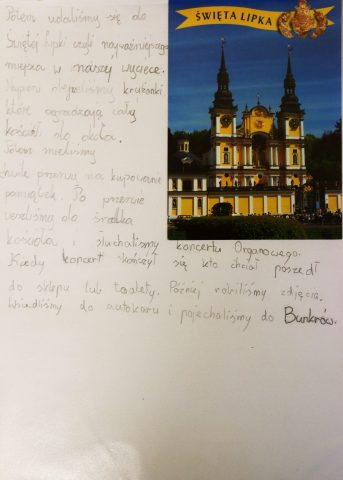 ŚWIĘTA LIPKA
Potem udaliśmy się do
Świętej Lipki czyli najważniejszego
miejsca w naszej wycieczce.
Najpierw obejrzeliśmy krużganki
które ogradzają cały
kościół do okoła.
Potem mieliśmy
chwile przerwy na kupowanie
pamiątek. Po przerwie
weszliśmy do środka
kościoła i słuchaliśmy koncertu Organowego.
Kiedy koncert skończył się kto chciał poszedł
do sklepu lub toalety. Później robiliśmy zdjęcia.
Wsiedliśmy do autokaru i pojechaliśmy do Bunkrów.